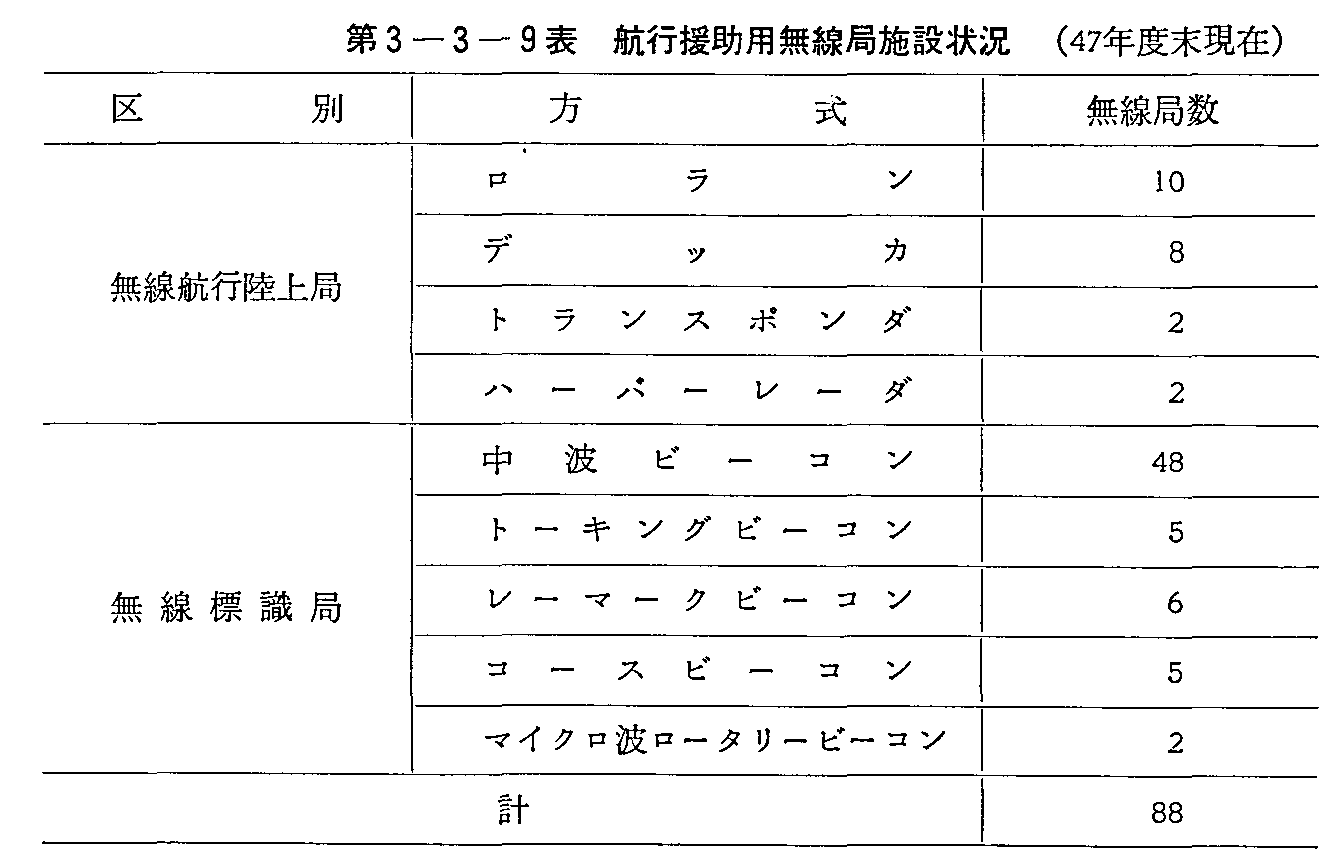 第3—3—9表 航行援助用無線局施設状況 （47年度末現在）
区別 方式 無線局数
無線航行陸上局
ロラン 10
デッカ 8
トランスポンダ 2
ハーバーレーダ 2
無線標識局
中波ビーコン 48
トーキングビーコン 5
レーマークビーコン 6
コースビーコン 5
マイクロ波ロータリービーコン 2
計 88